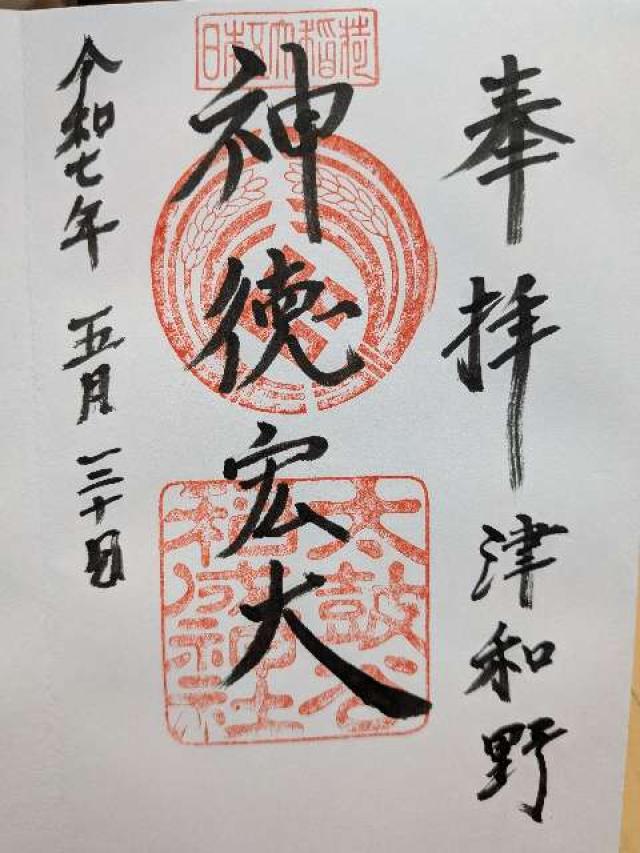 奉拝 津和野
日本五大稲荷
神徳宏大
太鼓谷稲成神社
令和七年 五月 三十日